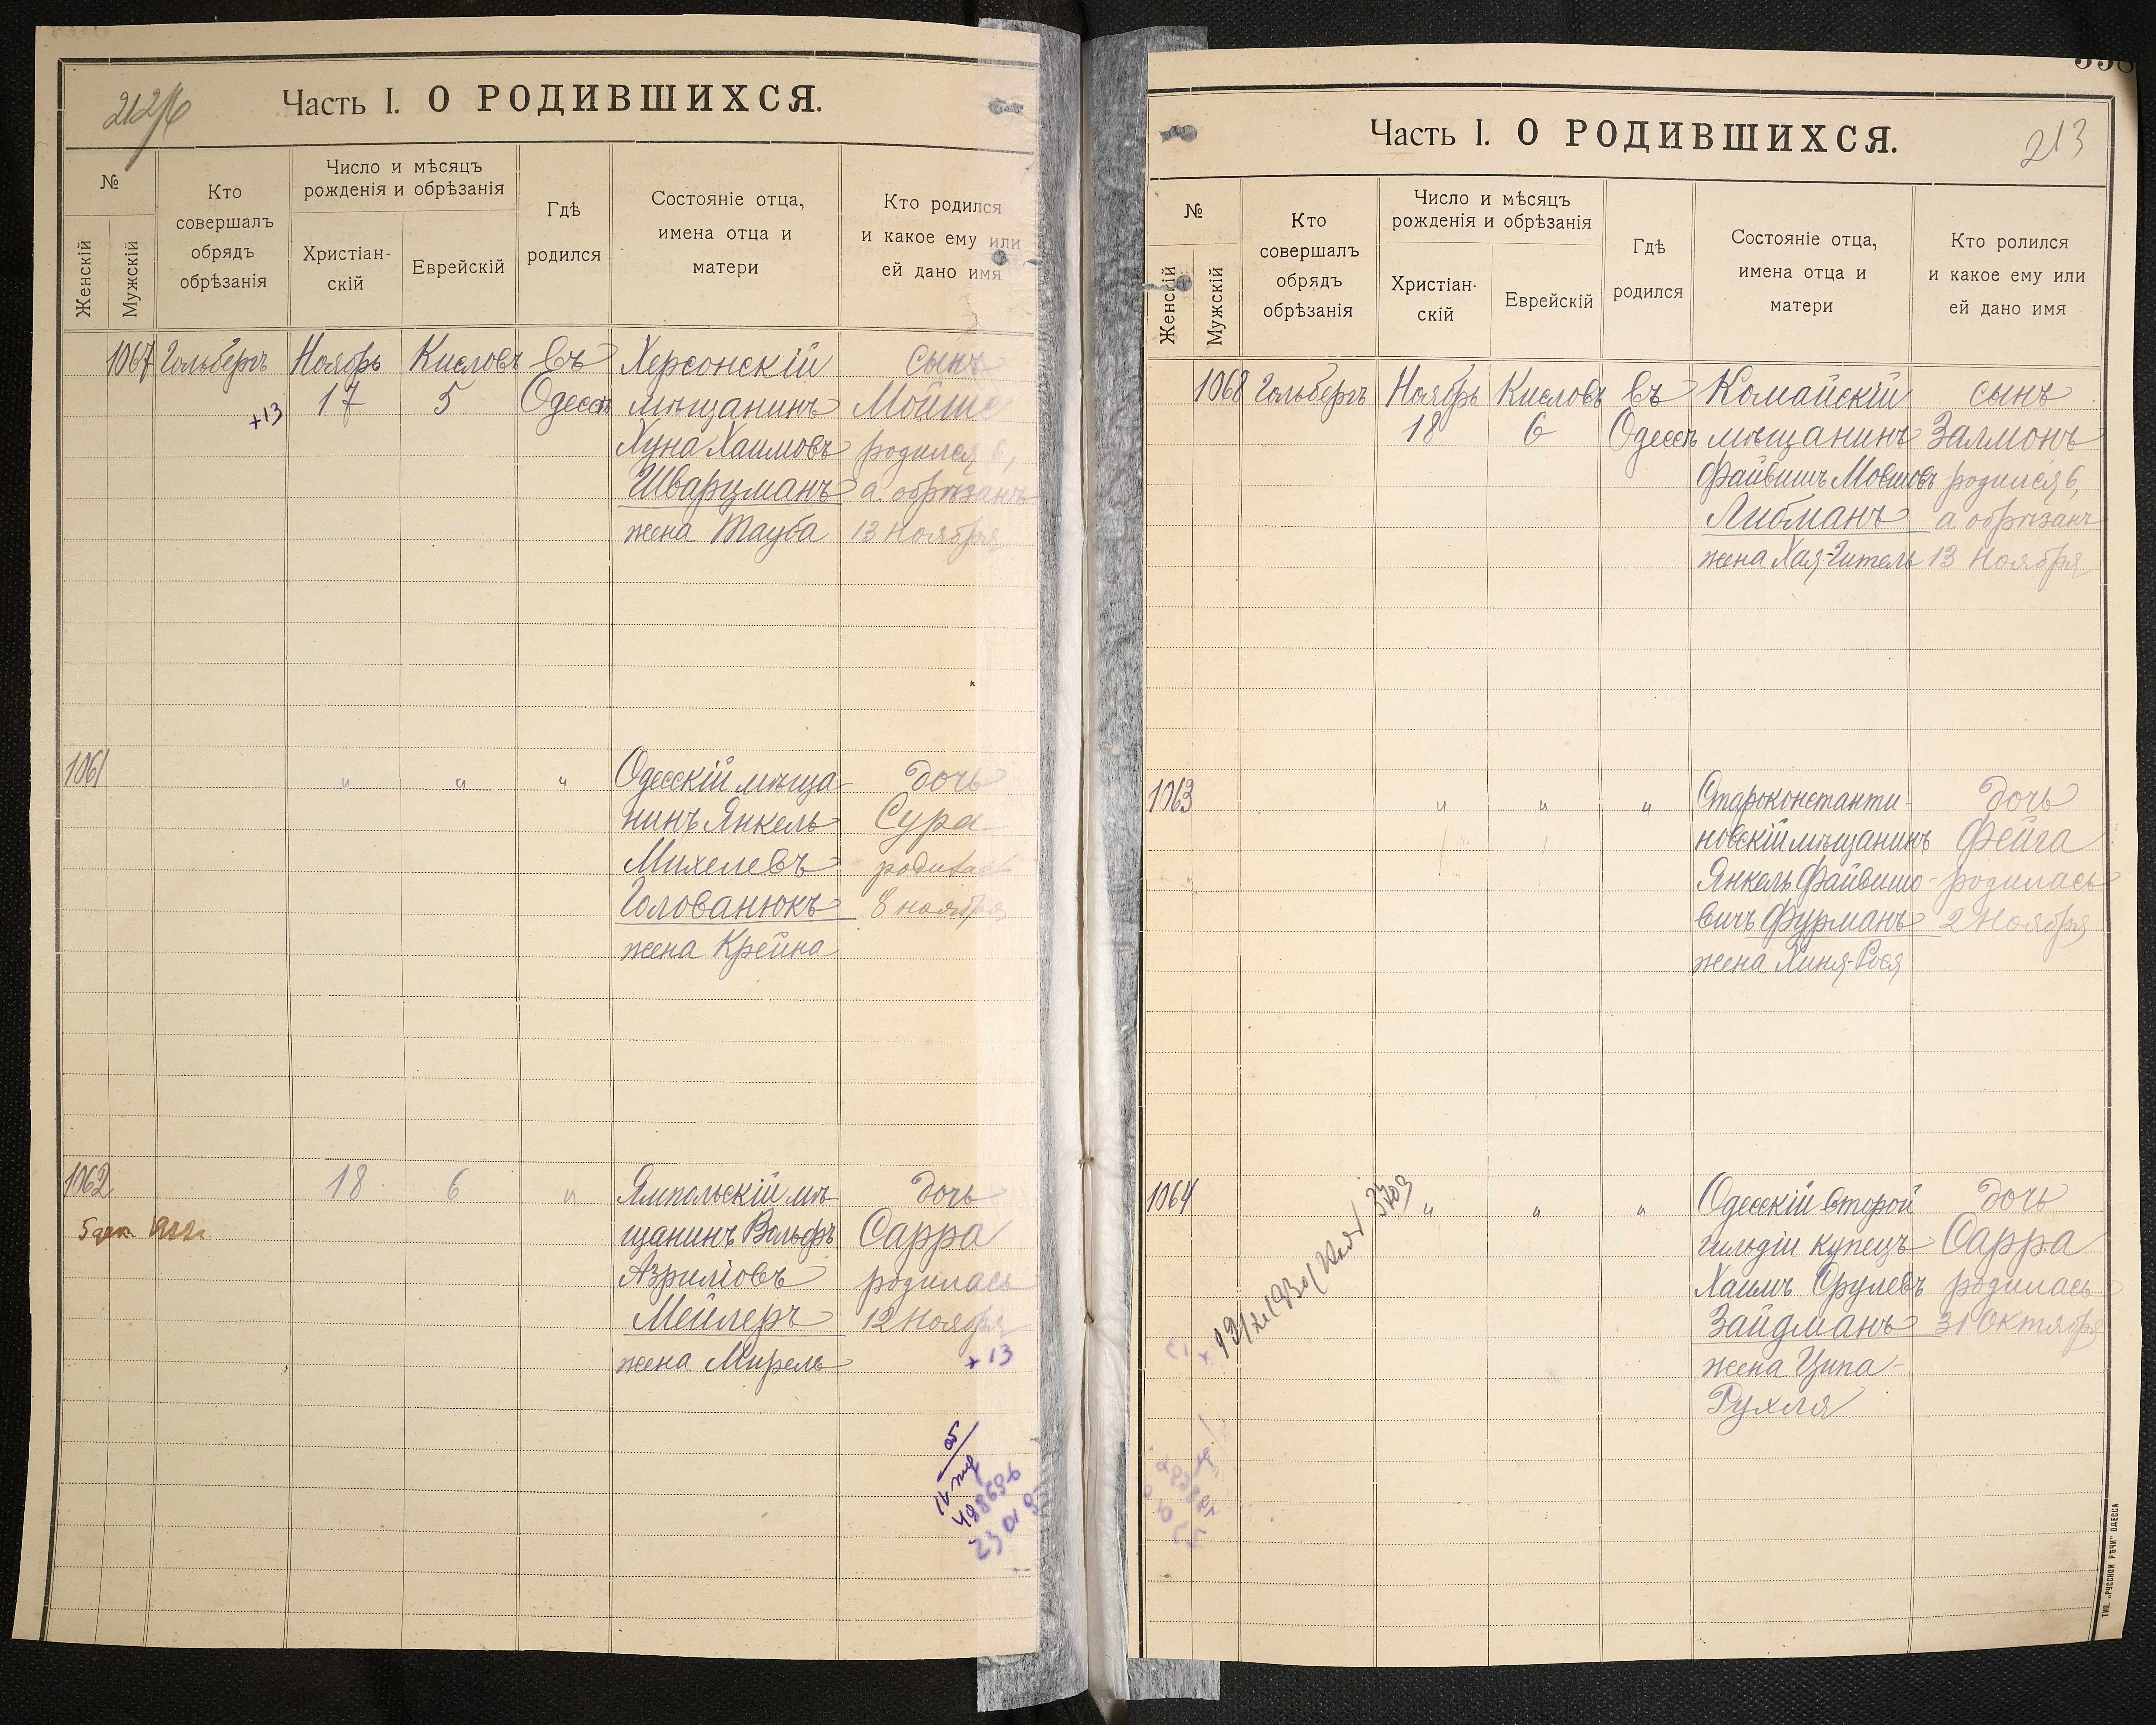 212/б
Часть I. О РОДИВШИХСЯ.
№
Женскій
Мужскій
Кто
совершалъ
обрядъ
обрѣзанія
Число и мѣсяцъ
рожденія и обрѣзанія
Христіан-
скій
Еврейскій
Гдѣ
родился
Состояніе отца,
имена отца и
матери
Кто родился
и какое ему или
ей дано имя
1067 Гольбергъ Ноябрь Кисловъ Въ Херсонскій сынъ
+13 17 5 Одессѣ мѣщанинъ Мойше
Хуна Хаимовъ родился 6,
Шварцманъ а обрѣзанъ
жена Тауба 13 Ноября
1061 " " " Одесскій мѣща- дочь
нинъ Янкель Сура
Михелевъ родилась
Голованюкъ 8 ноября
жена Крейна
1062 18 6 " Ямпольскій мѣ- дочь
щанинъ Вольфъ Сарра
Азриліовъ родилась
Мейлеръ 12 Ноября
жена Мирель +13
488696
23 01
Часть I. О РОДИВШИХСЯ.
213
№
Женскій
Мужскій
Кто
совершалъ
обрядъ
обрѣзанія
Число и мѣсяцъ
рожденія и обрѣзанія
Христіан-
скій
Еврейскій
Гдѣ
родился
Состояніе отца,
имена отца и
матери
Кто ролился
и какое ему или
ей дано имя
1068 Гольбергъ Ноябрь Кисловъ Въ Комайскій сынъ
18 6 Одессѣ мѣщанинъ Залмонъ
Файвишъ Мовшовъ родился 6,
Либманъ а обрѣзанъ
жена Хая-Гитель 13 Ноября
1063 " " " Староконстанти- дочь
новскій мѣщанинъ Фейга
Янкель Файвишо- родилась
вичъ Фурманъ 2 Ноября
жена Хиня-Рося
1064 3703 " " " Одесскій второй дочь
гильдіи купецъ Сарра
Хаимъ Срулевъ родилась
Зайдманъ 31 Октября
жена Ципа-
Рухля
ТИП. „РУССКОЙ РѢЧИ" ОДЕССА